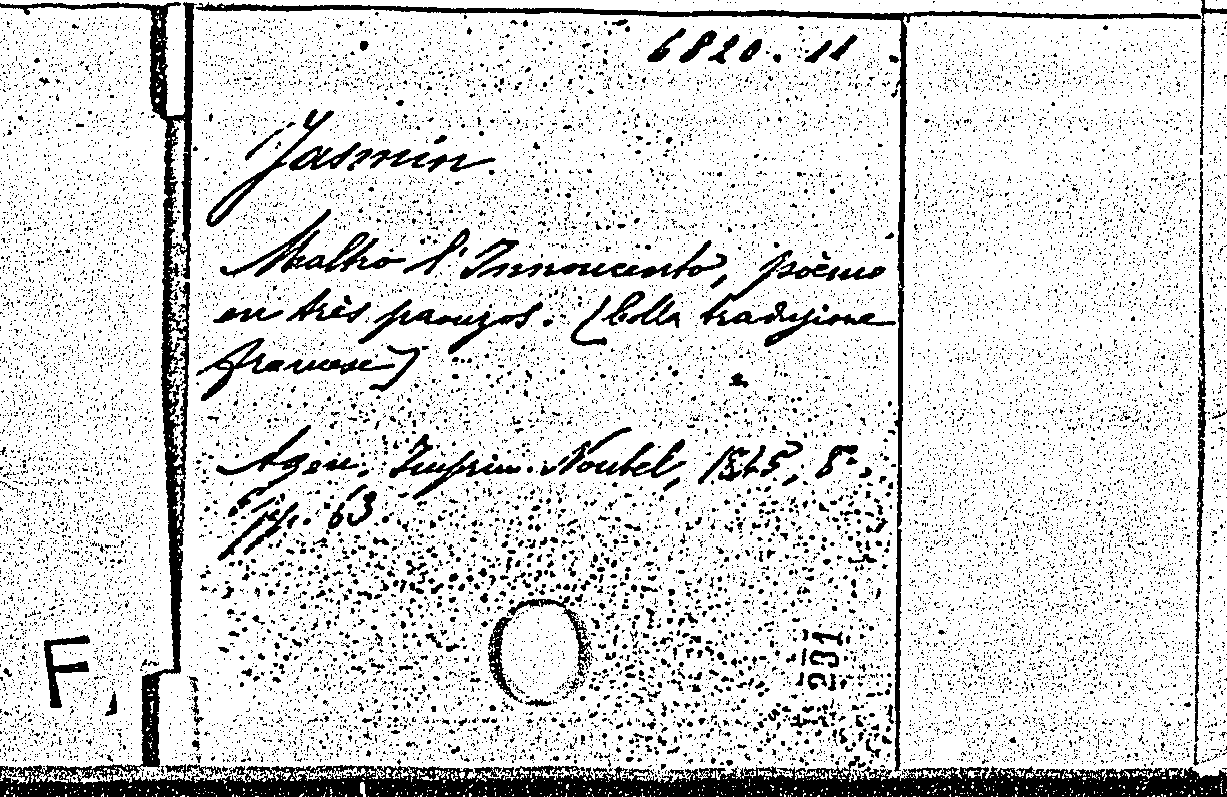 6820. 11
Jasmin
Maltro l'Innoucento, poème
en très paouzos. (Colla traduzione
francese)
Agen, Imprim. Noubel, 1845, 8°.,
pp. 63.
F
201